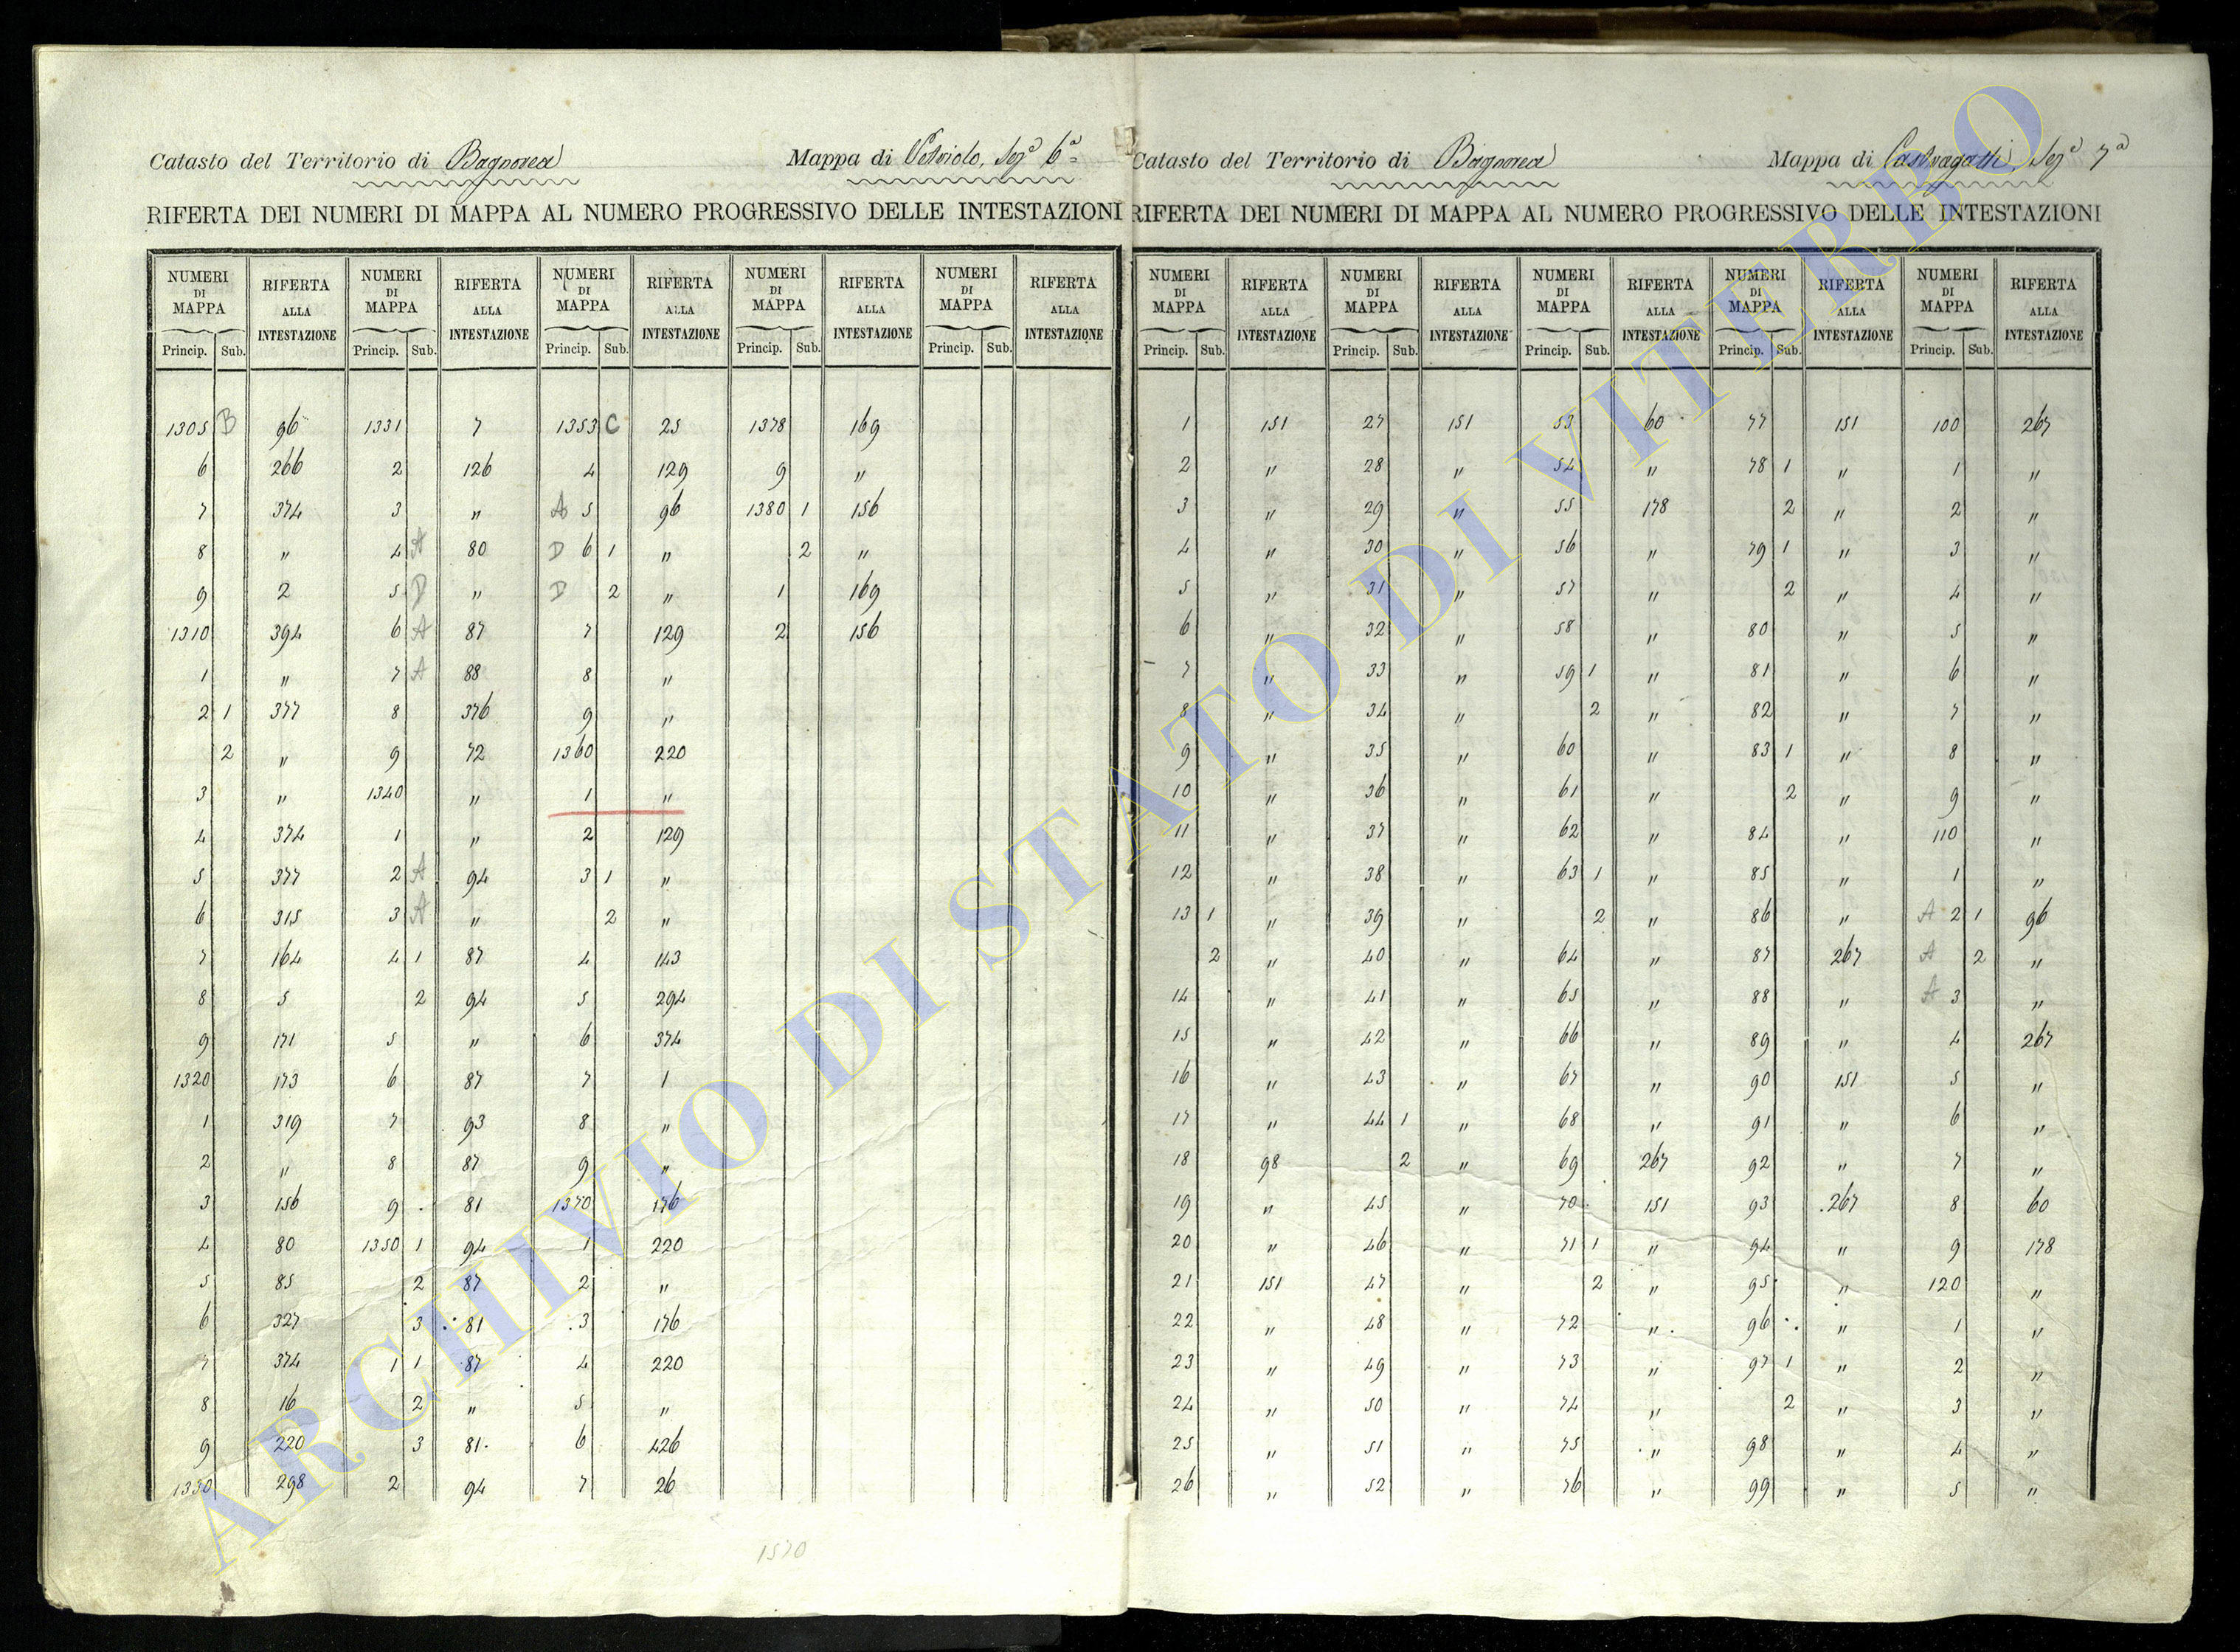 Catasto del Territorio di Bagnorea Mappa di Vetriolo, Sezᵉ 6ᵃ
RIFERTA DEI NUMERI DI MAPPA AL NUMERO PROGRESSIVO DELLE INTESTAZIONI
NUMERI DI MAPPA RIFERTA ALLA INTESTAZIONE NUMERI DI MAPPA RIFERTA ALLA INTESTAZIONE NUMERI DI MAPPA RIFERTA ALLA INTESTAZIONE NUMERI DI MAPPA RIFERTA ALLA INTESTAZIONE NUMERI DI MAPPA RIFERTA ALLA INTESTAZIONE
Princip. Sub. Princip. Sub. Princip. Sub. Princip. Sub. Princip. Sub.
1305 B 96 1331 7 1353 C 25 1378 169
6 266 2 126 4 129 9 "
7 374 3 " A 5 96 1380 1 156
8 " 4 A 80 D 6 1 " 2 "
9 2 5 D " D 2 " 1 169
1310 394 6 A 87 7 129 2 156
1 " 7 A 88 8 "
2 1 377 8 376 9 "
2 " 9 72 1360 220
3 " 1340 " 1 "
4 374 1 " 2 129
5 377 2 A 94 3 1 "
6 315 3 A " 2 "
7 164 4 1 87 4 143
8 5 2 94 5 294
9 171 5 " 6 374
1320 173 6 87 7 1
1 319 7 93 8 "
2 " 8 87 9 "
3 156 9 81 1370 176
4 80 1350 1 94 1 220
5 85 2 87 2 "
6 327 3 81 3 176
7 374 1 1 87 4 220
8 16 2 " 5 "
9 220 3 81 6 426
1330 298 2 94 7 26
1570
Catasto del Territorio di Bagnorea Mappa di Sezᵉ 7ᵃ
RIFERTA DEI NUMERI DI MAPPA AL NUMERO PROGRESSIVO DELLE INTESTAZIONI
NUMERI DI MAPPA RIFERTA ALLA INTESTAZIONE NUMERI DI MAPPA RIFERTA ALLA INTESTAZIONE NUMERI DI MAPPA RIFERTA ALLA INTESTAZIONE NUMERI DI MAPPA RIFERTA ALLA INTESTAZIONE NUMERI DI MAPPA RIFERTA ALLA INTESTAZIONE
Princip. Sub. Princip. Sub. Princip. Sub. Princip. Sub. Princip. Sub.
1 151 27 151 53 60 77 151 100 267
2 " 28 " 54 " 78 1 " 1 "
3 " 29 " 55 178 2 " 2 "
4 " 30 " 56 " 79 1 " 3 "
5 " 31 " 57 " 2 " 4 "
6 " 32 " 58 " 80 " 5 "
7 " 33 " 59 1 " 81 " 6 "
8 " 34 " 2 " 82 " 7 "
9 " 35 " 60 " 83 1 " 8 "
10 " 36 " 61 " 2 " 9 "
11 " 37 " 62 " 84 " 110 "
12 " 38 " 63 1 " 85 " 1 "
13 1 " 39 " 2 " 86 " A 2 1 96
2 " 40 " 64 " 87 267 A 2 "
14 " 41 " 65 " 88 " A 3 "
15 " 42 " 66 " 89 " 4 267
16 " 43 " 67 " 90 151 5 "
17 " 44 1 " 68 " 91 " 6 "
18 98 2 " 69 267 92 " 7 "
19 " 45 " 70 151 93 267 8 60
20 " 46 " 71 1 " 94 " 9 178
21 151 47 " 2 " 95 " 120 "
22 " 48 " 72 " 96 " 1 "
23 " 49 " 73 " 97 1 " 2 "
24 " 50 " 74 " 2 " 3 "
25 " 51 " 75 " 98 " 4 "
26 " 52 " 76 " 99 " 5 "
ARCHIVIO DI STATO DI VITERBO